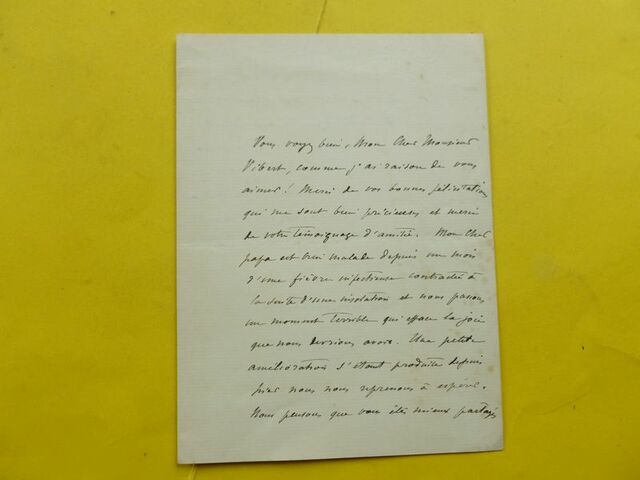 Vous voyez bien, Mon Cher Monsieur
Vibert, comme j'ai raison de vous
aimer ! Merci de vos bonnes félicitations
qui me sont bien précieuses et merci
de votre témoignage d'amitié. Mon Cher
papa est bien malade depuis un mois
d'une fièvre infectieuse contractée à
la suite d'une insolation et nous passons
un moment terrible qui efface la joie
que nous devrions avoir. Une petite
amélioration s'étant produite depuis
hier nous nous reprenons à espérer.
Nous pensons que vous êtes mieux partagés